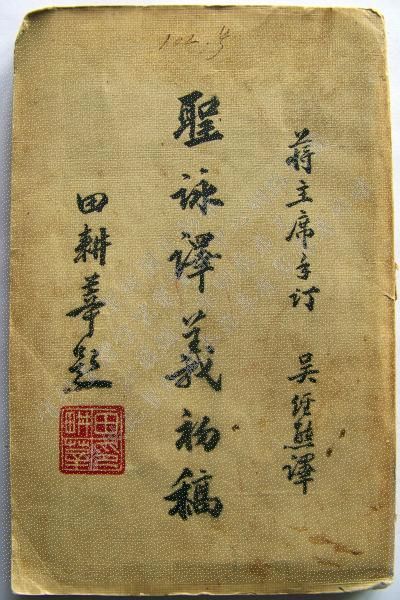 蔣主席手訂 吳經熊譯
聖詠譯義初稿
田耕莘題